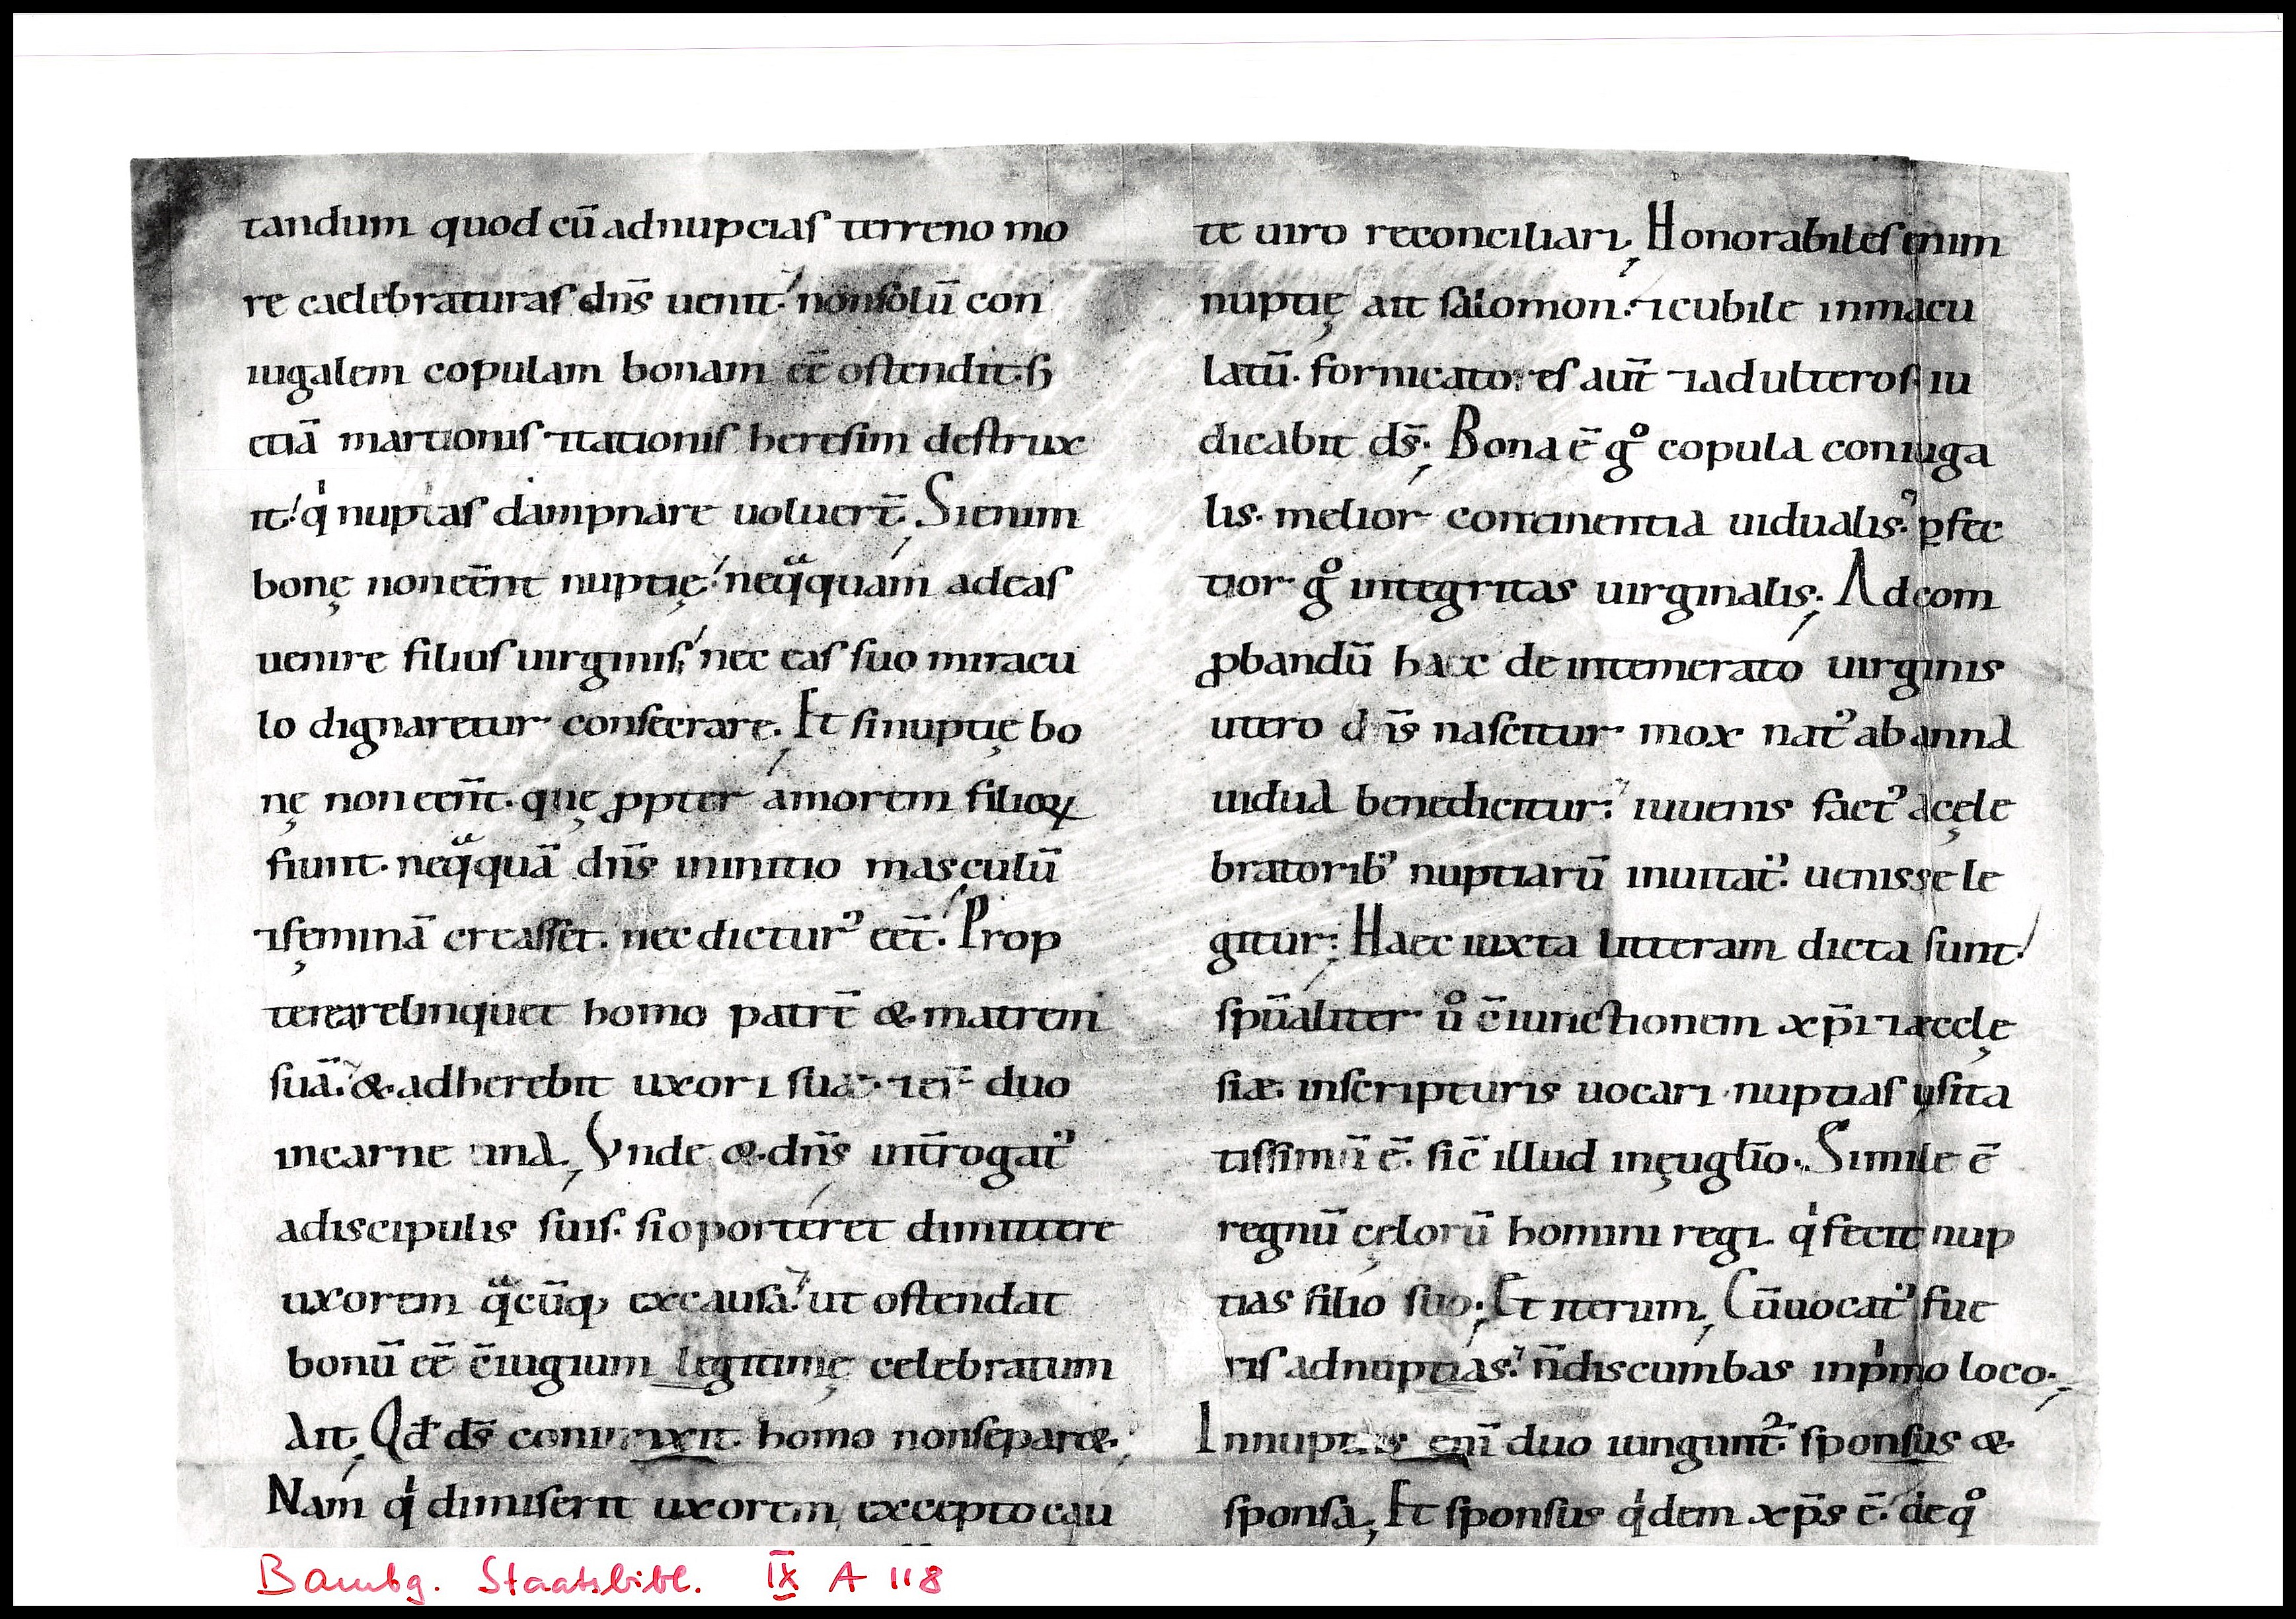 tandum quod cū ad nupcias terreno mo
re caelebraturas dn̄s uenit. non solū con
iugalem copulam bonam eē ostendit. ꜱ̄
etiā martionis ⁊tationis heresim destrux
it. qͥ nuptias dampnare uoluer̄t. Si enim
bonę non eēnt nuptię. neqͣquam ad eas
uenire filius uirginis. nec eas suo miracu
lo dignaretur consecrare. Et si nuptię bo
nę non een̄t. quę ꝓpter amorem filioꝝ
fiunt. neqͣquā dn̄s in initio masculū
⁊ fęminā creasset. nec dictur᾽ eēt. Prop
terea relinquet homo patrē & matrem
suā. & adherebit uxori suae. ⁊ er̄ duo
in carne una. Vnde & dn̄s int̄rogat᾽
a discipulis suis. si oporteret dimittere
uxorem qͣcūq; ex causa. ut ostendat
bonū eē c̄iugium legitimę celebratum
Ait. Qd̄ ds̄ coniunxit. homo non separ&.
Nam qͥ dimiserit uxorem, excepto cau
te uiro reconciliari. Honorabiles enim
nuptię ait salomon. ⁊ cubile inmacu
latū. fornicatores aut̄ ⁊ adulteros iu
dicabit ds̄. Bona ē gͦ copula coniuga
lis. melior continentia uidualis. ꝑfec
tior gͦ integritas uirginalis. Ad com
ꝓbandū haec de intemerato uirginis
utero dn̄s nascitur mox nat᾽ ab anna
uidua benedicitur. iuuenis fact᾽ a cęle
bratorib᾽ nuptiarū inuitat᾽. uenisse le
gitur. Haec iuxta litteram dicta sunt.
spūaliter uͦ c̄iunctionem xp̄i ⁊ aecclę
siæ in scripturis uocari nuptias usita
tissimū ē. sic̄ illud in ęuglīo. Simile ē
regnū cęlorū homini regi qͥ fecit nup
tias filio suo. Et iterum, Cū uocat᾽ fue
ris ad nuptias. n̄ discumbas in pͥmo loco.
In nuptiis eni duo iungunt᾽. sponsus &
sponsa. Et sponsus qͥdem xp̄s ē. de qͦ
Bambg. Staatsbibl. IX A 118